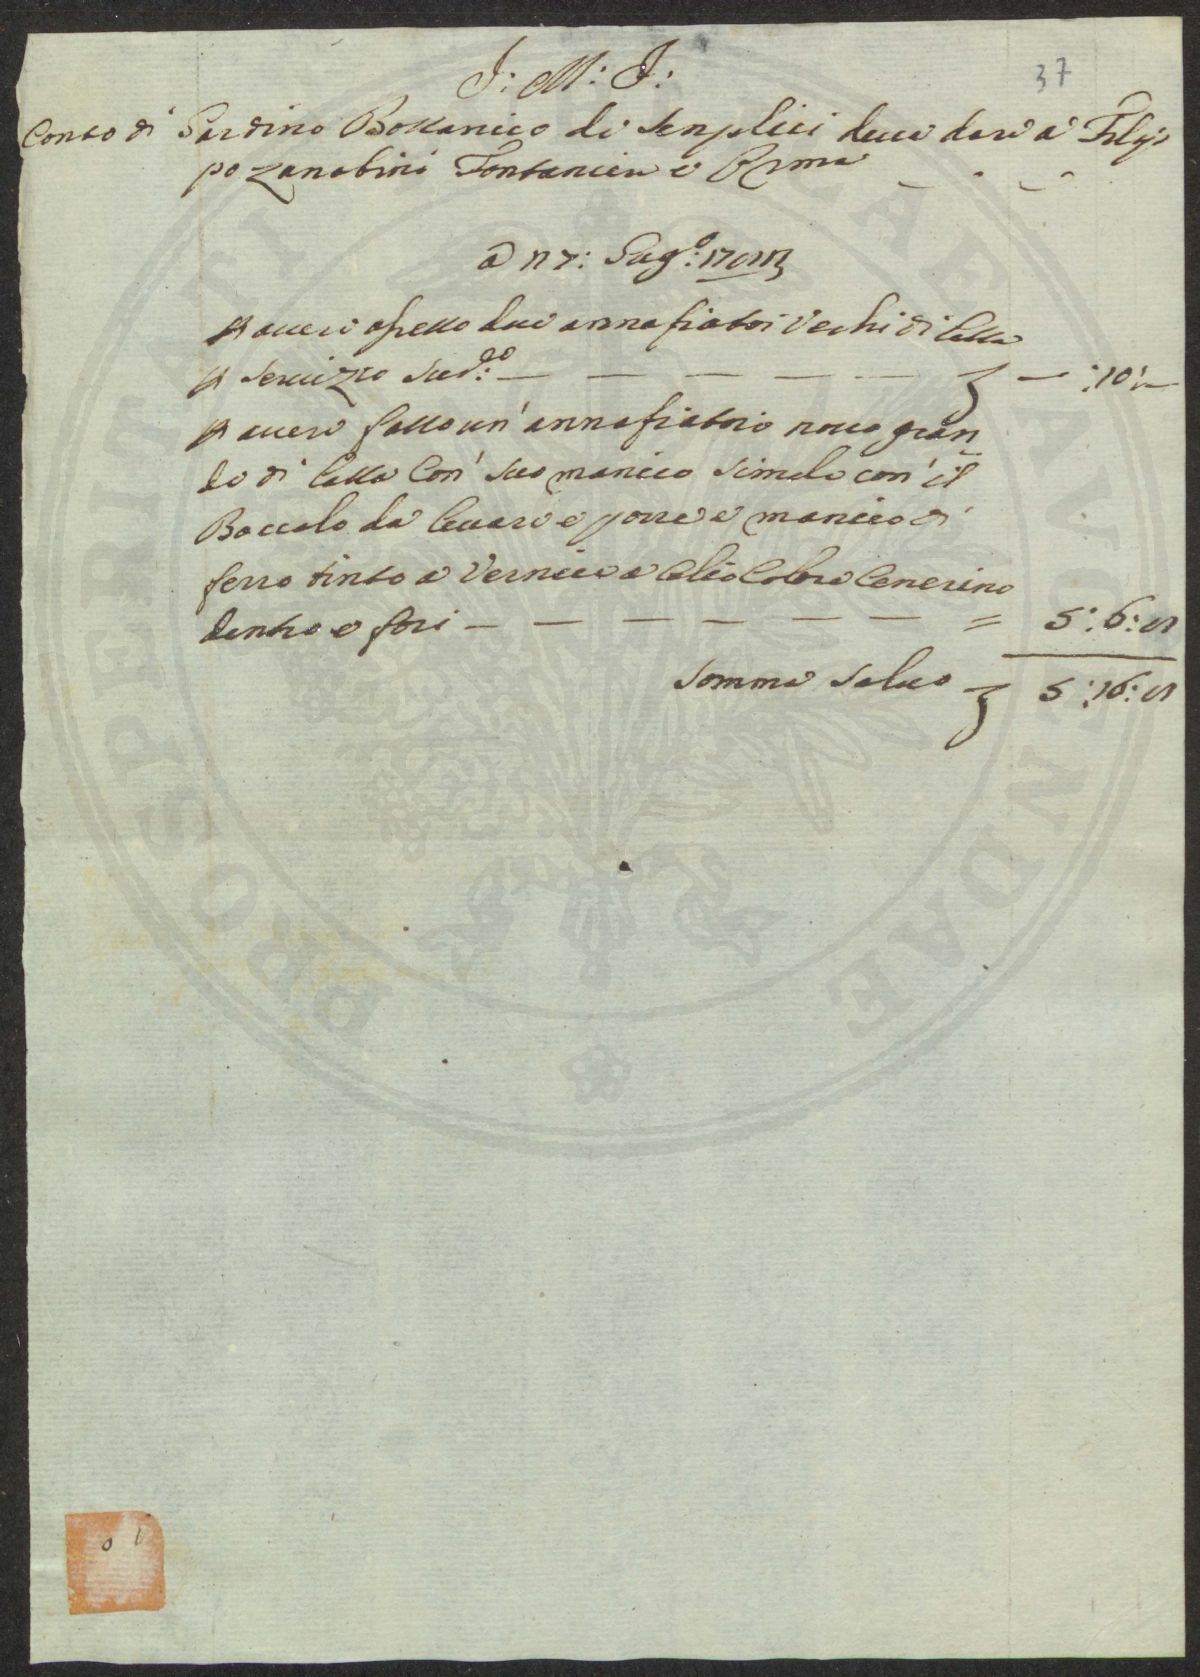 J: M: J:
37
Conto di Gardino Bottanico de Senplici deve dare a' Filip
po Zanobini Fontanier e
a 17: Giug.o:
P avere due annafiatoi Vechi di latta
P servizio Sud.do — — — — — — :10:—
P avere fatto un' annafiatoio novo gran
de di latta Con' suo manico simile con' il
Boccalo da levare e porre e manico di
ferro tinto a Vernice a Colore Cenerino
dentro e fori — — — — — — = 5:6:8
Somma Salvo 5:16:8
PROSPERITATI PUBLICAE AUGENDAE